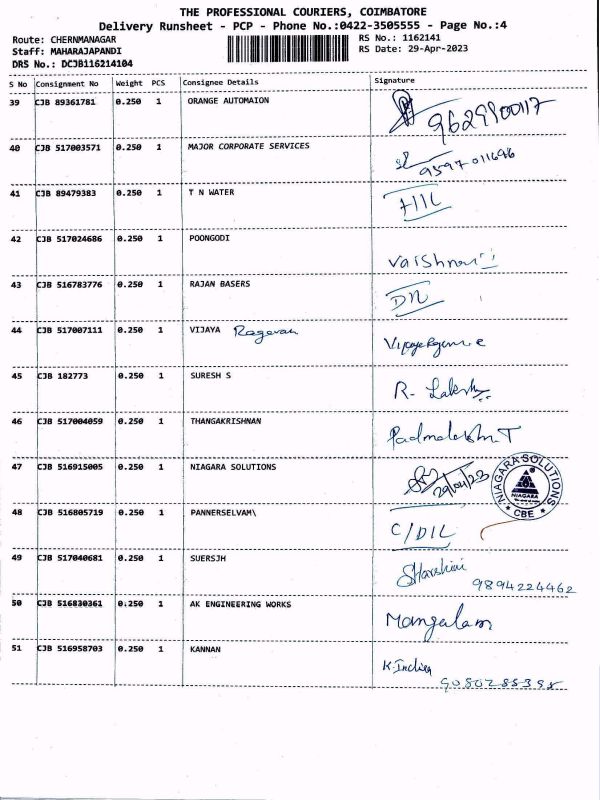 THE PROFESSIONAL COURIERS, COIMBATORE
Delivery Runsheet - PCP - Phone No.:0422-3505555 - Page No.:4
Route: CHERNMANAGAR RS No.: 1162141
Staff: MAHARAJAPANDI RS Date: 29-Apr-2023
DRS No.: DCJB116214104
S No Consignment No Weight PCS Consignee Details Signature
39 CJB 89361781 0.250 1 ORANGE AUTOMAION
40 CJB 517003571 0.250 1 MAJOR CORPORATE SERVICES 9597011696
41 CJB 89479383 0.250 1 T N WATER
42 CJB 517024686 0.250 1 POONGODI Vaishnavi
43 CJB 516783776 0.250 1 RAJAN BASERS
44 CJB 517007111 0.250 1 VIJAYA Ragavan
45 CJB 182773 0.250 1 SURESH S R. Laksh
46 CJB 517004059 0.250 1 THANGAKRISHNAN
47 CJB 516915005 0.250 1 NIAGARA SOLUTIONS 29/04/23 NIAGARA SOLUTIONS NIAGARA * CBE *
48 CJB 516805719 0.250 1 PANNERSELVAM\ C/DIL
49 CJB 517040681 0.250 1 SUERSJH SHarshini
9894224462
50 CJB 516830361 0.250 1 AK ENGINEERING WORKS Mangalam
51 CJB 516958703 0.250 1 KANNAN K.Indira